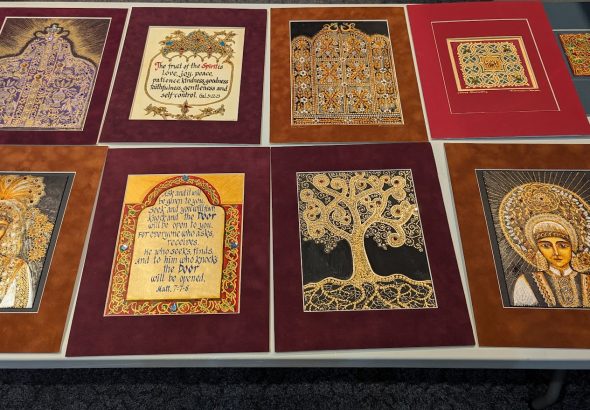 The fruit of the Spirit is
love, joy, peace,
patience, kindness, goodness
faithfulness, gentleness and
self-control. Gal. 5:22,23
Ask and it will
be given to you,
Seek and you will find
knock and the Door
will be open to you.
For everyone who asks,
receives,
he who seeks, finds,
And to him who knocks
the Door
will be opened.
Matt. 7:7-8